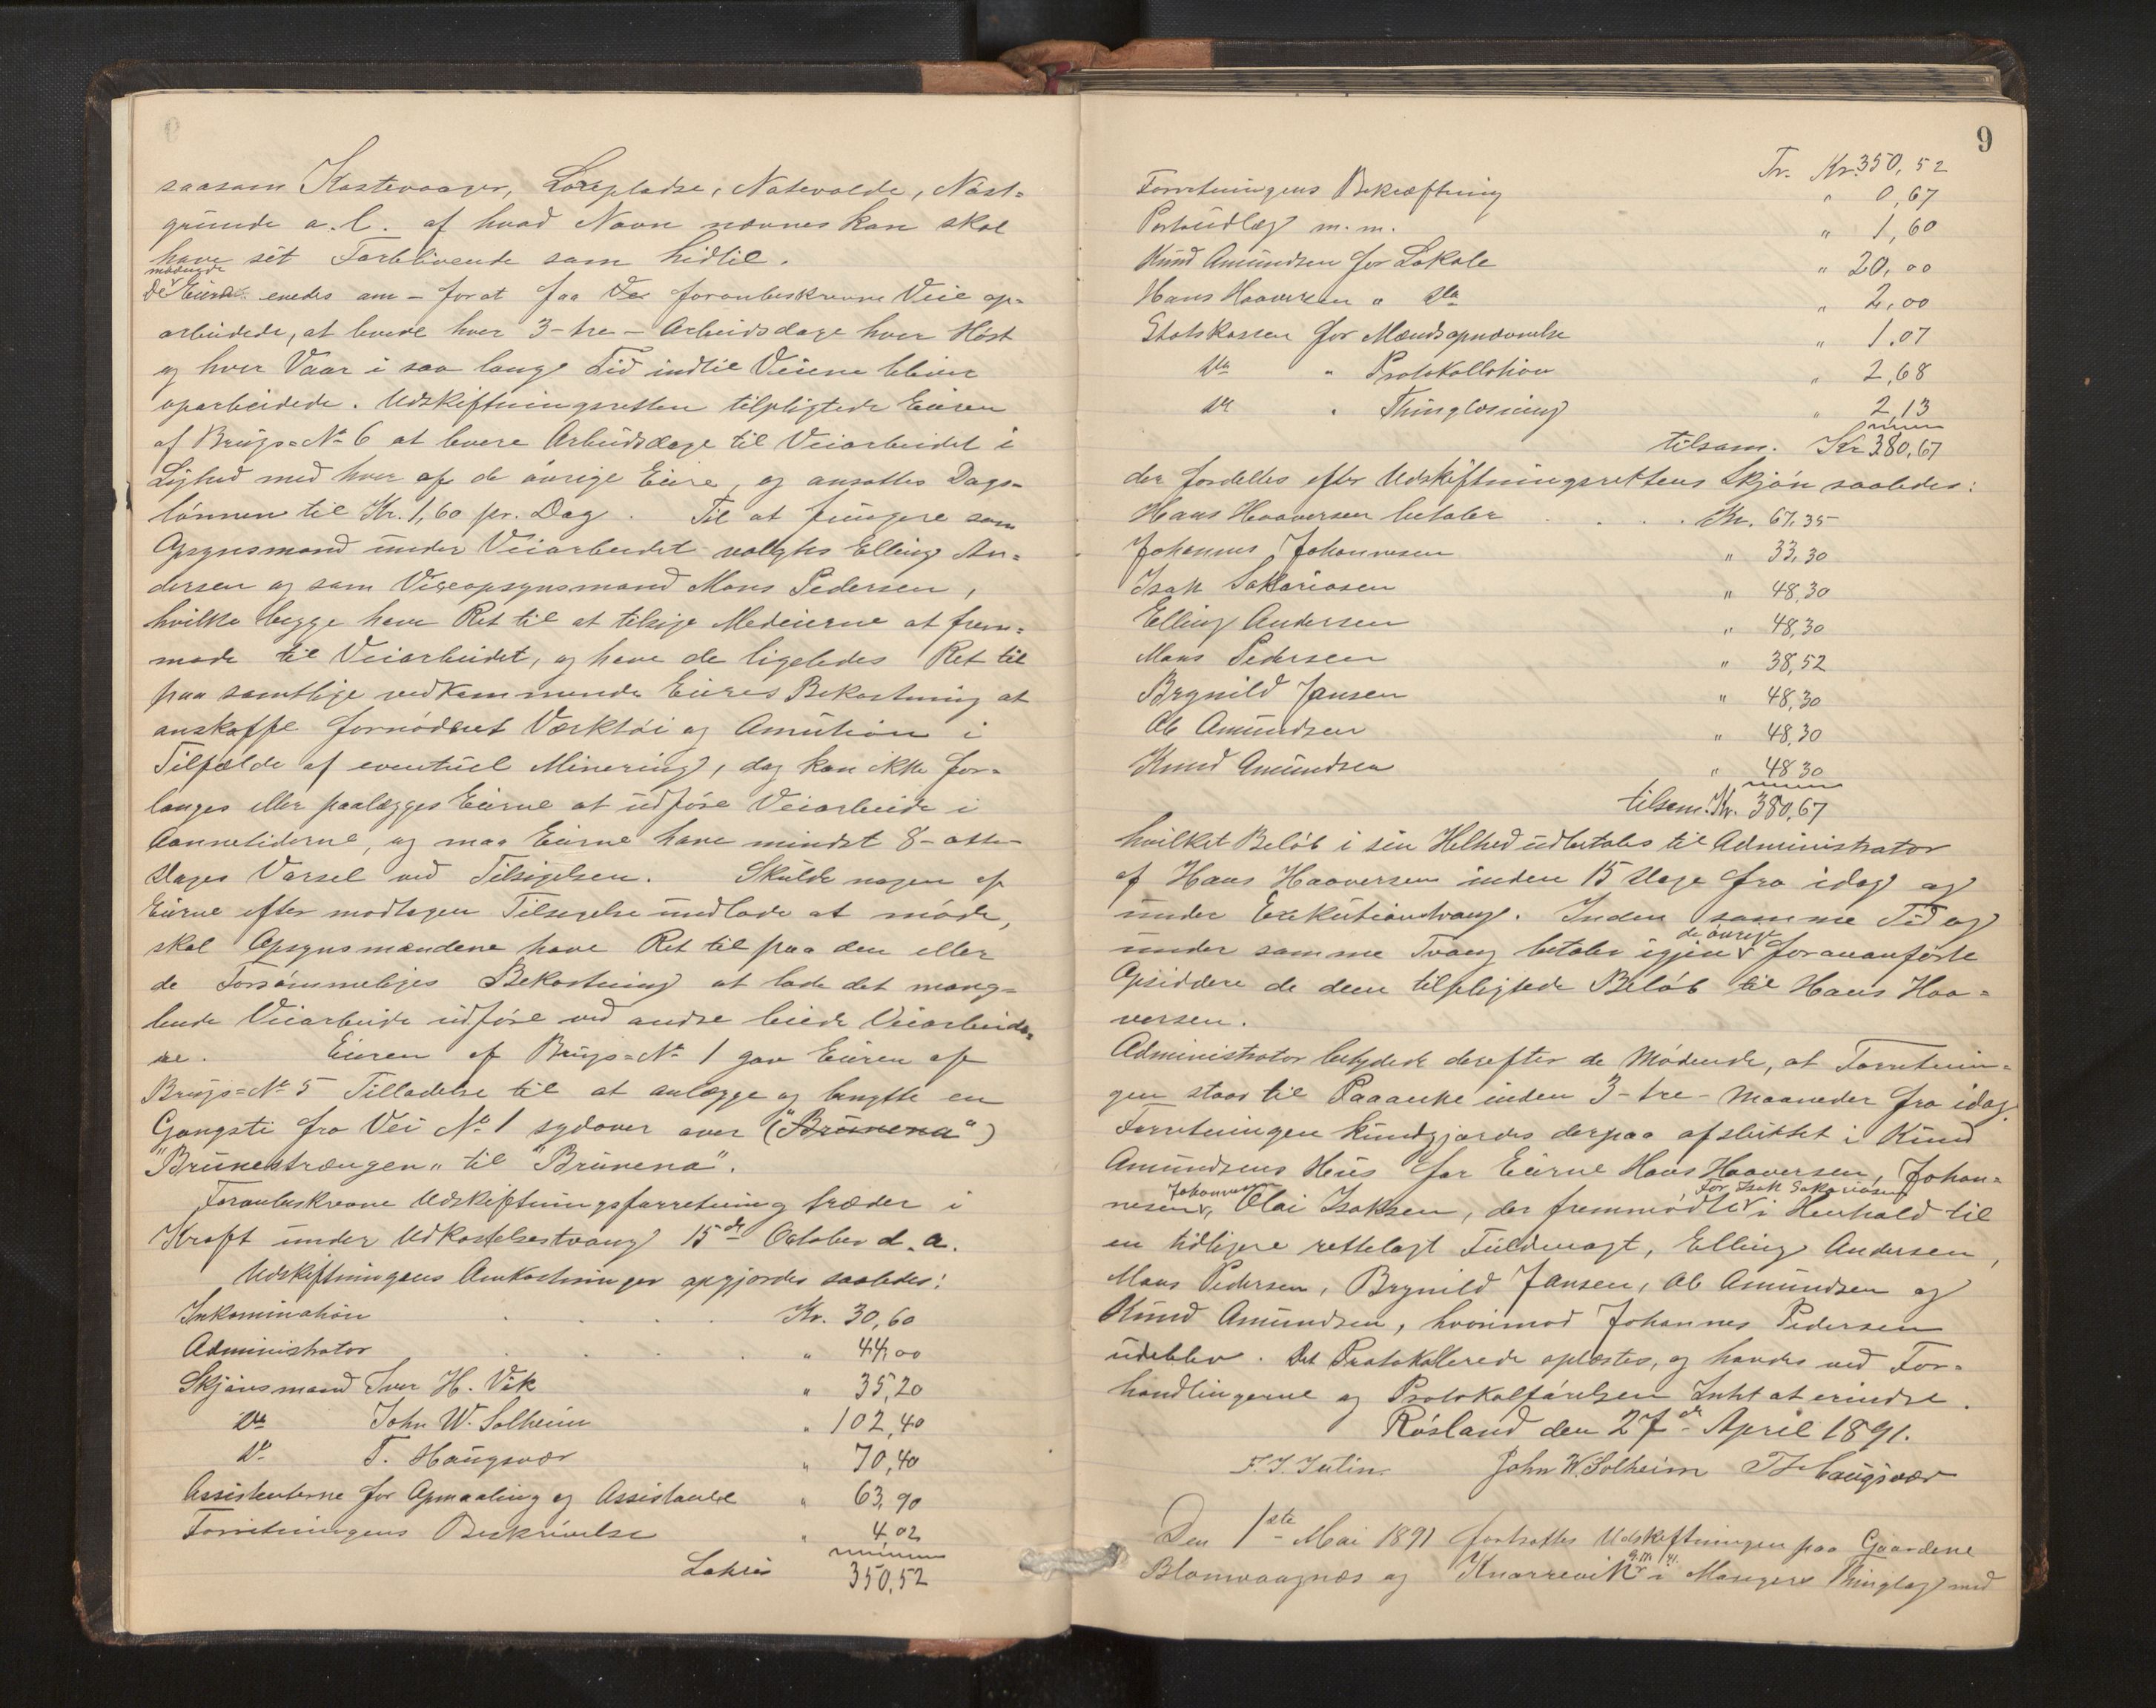 saasom Kastevaager, Lorepladse, Notevolde, Nøst-
grunde o.l. af hvad Navn nævnes kan skal
have sit Forblivende som hidtil.
mødende
De Eiere enedes om – for at faa de foranbeskrevne Veie op-
arbeidede, at levere hver 3 – tre – Arbeidsdage hver Høst
og hver Vaar i saa lang Tid indtil Veiene bliver
oparbeidede. Udskiftningsretten tilpligtede Eieren
af Brugs=No 6 at levere Arbeidsdage til Veiarbeidet i
Lighed med hver af de øvrige Eiere, og ansattes Dags-
lønnen til Kr. 1,60 pr. Dag. Til at fungere som
Opsynsmand under Veiarbeidet valgtes Elling An-
dersen og som Viceopsynsmand Mons Pedersen,
hvilke begge have Ret til at tilsige Medeierne at frem-
møde til Veiarbeidet, og have de ligeledes Ret til
paa samtlige vedkommende Eieres Bekostning at
anskaffe fornødent Værktøi og Amution i
Tilfælde af eventuel Minering, dog kan ikke for-
langes eller paalægges Eierne at udføre Veiarbeide i
Aannetiderne, og maa Eierne have mindst 8 – otte –
Dages Varsel ved Tilsigelsen. Skulde nogen af
Eierne efter modtagen Tilsigelse undlade at møde,
skal Opsynsmændene have Ret til paa den eller
de Forsømmeliges Bekostning at lade det mang-
lende Veiarbeide udføre ved andre leiede Veiarbeide-
re. Eieren af Brugs=No 1 gav Eieren af
Brugs=No 5 Tilladelse til at anlægge og benytte en
Gangsti fra Vei No 1 sydover over ("Brunena")
"Brunestrængen" til "Brunena".
Foranbeskrevne Udskiftningsforretning træder i
Kraft under Udkastelsestvang 15de October d. a.
Udskiftningens Omkostninger opgjordes saaledes:
Inkamination . . . . Kr. 30,60
Administrator . . . " 44,00
Skjønsmand Iver H. Vik " 35,20
Do John W. Solheim " 102,40
Do T. Haugsvær " 70,40
Assistenterne for Opmaaling og Assistance " 63,90
Forretningens Beskrivelse " 4,02
Lateris 350,52
9
Tr. Kr. 350,52
Forretningens Bekræftning " 0,67
Portoudlæg m. m. " 1,60
Knud Amundsen for Lokale " 20,00
Hans Haaversen " Do " 2,00
Statskassen for Mændsopnævnelse " 1.07
Do " Protokollation " 2,68
Do " Thinglæsning " 2,13
tilsam. Kr 380,67
der fordeltes efter Udskiftningsrettens Skjøn saaledes:
Hans Haaversen betaler . . . Kr. 67,35
Johannes Johannesen " 33,30
Isak Sakariasen " 48,30
Elling Andersen " 48,30
Mons Pedersen " 38,52
Brynild Jansen " 48,30
Ole Amundsen " 48,30
Knud Amundsen " 48,30
tilsam. Kr. 380,67
hvilket Beløb i sin Helhed udbetales til Administrator
af Hans Haaversen inden 15 Dage fra idag og
under Exekutionstvang. Inden samme Tid og
de øvrige
under samme Tvang betaler igjen forananførte
Opsiddere de dem tilpligtede Beløb til Hans Haa-
versen.
Administrator betydede derefter de Mødende, at Forretnin-
gen staar til Paaanke inden 3 – tre – Maaneder fra idag.
Forretningen kundgjordes derpaa afsluttet i Knud
Amundsens Hus for Eierne Hans Haaversen, Johan-
Johannesen, For Isak Sakariasen
nesen, Olai Isaksen, der fremmødte i Henhold til
en tidligere rettelagt Fuldmagt, Elling Andersen,
Mons Pedersen, Brynild Jansen, Ole Amundsen og
Knud Amundsen, hvorimod Johannes Pedersen
udeblev. Det Protokollerede oplæstes, og havdes ved For-
handlingerne og Protokolførelsen Intet at erindre.
Røsland den 27de April 1891.
John W. Solheim T Haugsvær
Den 1ste Mai 1891 fortsattes Udskiftningen paa Gaardene
Blomvaagnæs og Knarrevik i Mangers Thinglag med